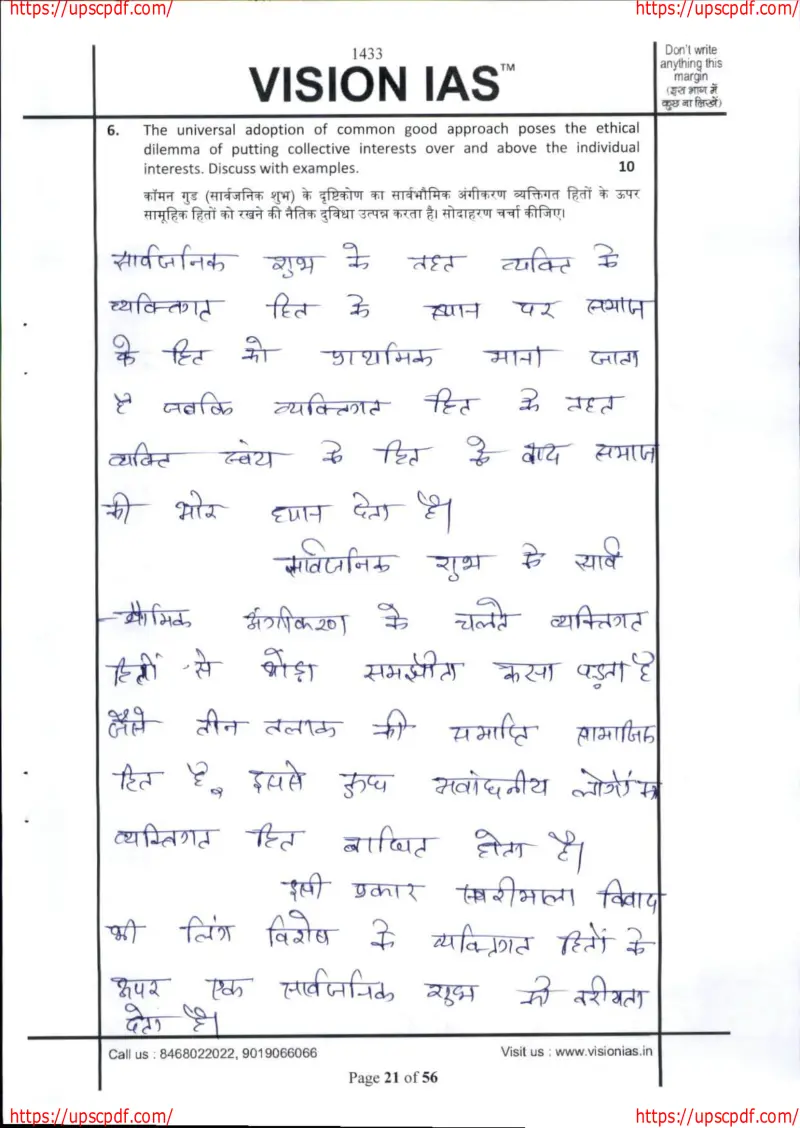 https://upscpdf.com/
https://upscpdf.com/
1433
VISION IAS™
Don't write
anything this
margin
(इस भाग में
कुछ ना लिखें)
6. The universal adoption of common good approach poses the ethical
dilemma of putting collective interests over and above the individual
interests. Discuss with examples. 10
कॉमन गुड (सार्वजनिक शुभ) के दृष्टिकोण का सार्वभौमिक अंगीकरण व्यक्तिगत हितों के ऊपर
सामूहिक हितों को रखने की नैतिक दुविधा उत्पन्न करता है। सोदाहरण चर्चा कीजिए।
सार्वजनिक शुभ के तहत व्यक्ति के
व्यक्तिगत हित के स्थान पर समाज
के हित को प्राथमिक माना जाता
है जबकि व्यक्तिगत हित के तहत
व्यक्ति स्वंय के हित के बाद समाज
की ओर ध्यान देता है।
सार्वजनिक शुभ के सार्व
-भौमिक अंगीकरण के चलते व्यक्तिगत
हितों से थोड़ा समझौता करना पड़ता है
जैसे तीन तलाक की समाप्ति सामाजिक
हित है, इससे कुछ लोगों
व्यक्तिगत हित बाधित होता है।
इसी प्रकार सबरीमाला विवाद
भी लिंग विशेष के व्यक्तिगत हितों के
ऊपर एक सार्वजनिक शुभ को वरीयता
देता है।
Call us : 8468022022, 9019066066
Visit us : www.visionias.in
Page 21 of 56
https://upscpdf.com/
https://upscpdf.com/